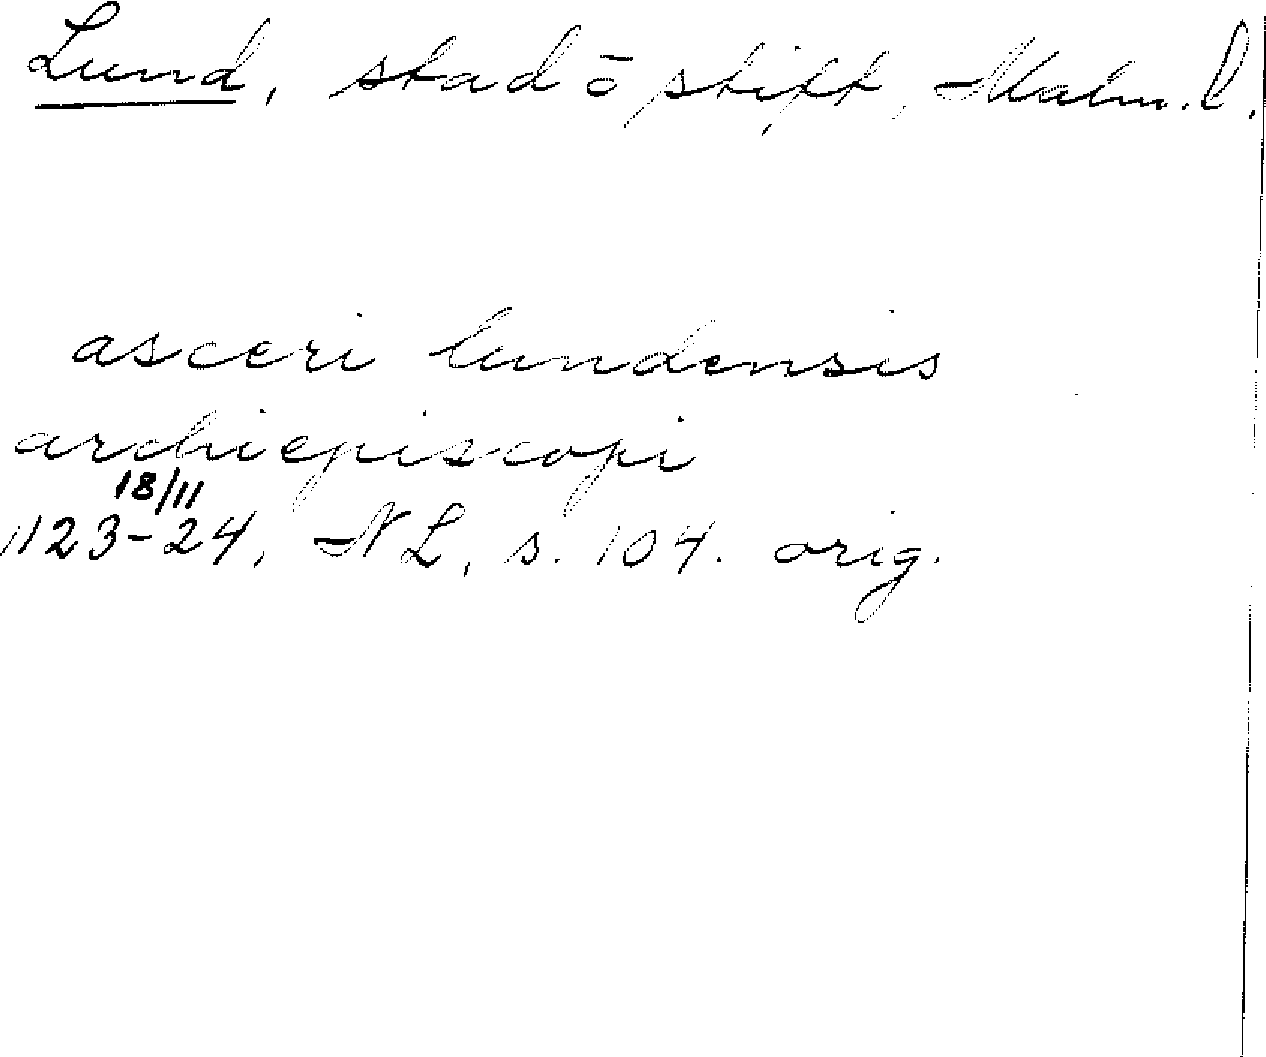 Lund, stad ō stift, Malm. l.
asceri lundensis
archiepiscopi
18/11
1123-24, NL, s. 104. orig.